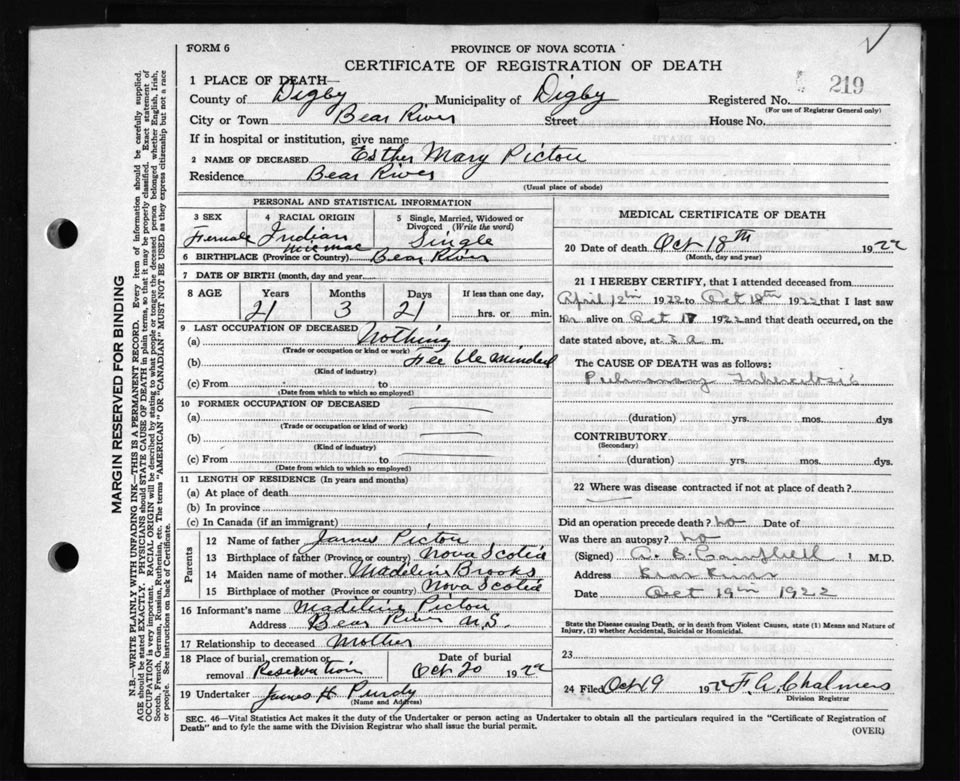 FORM 6
PROVINCE OF NOVA SCOTIA
CERTIFICATE OF REGISTRATION OF DEATH
219
1 PLACE OF DEATH—
County of Digby Municipality of Digby Registered No.
(For use of Registrar General only)
City or Town Bear River Street House No.
If in hospital or institution, give name
2 NAME OF DECEASED Esther Mary Pictou
Residence Bear River
(Usual place of abode)
PERSONAL AND STATISTICAL INFORMATION
3 SEX Female
4 RACIAL ORIGIN Indian Micmac
5 Single, Married, Widowed or Divorced (Write the word) Single
6 BIRTHPLACE (Province or Country) Bear River
7 DATE OF BIRTH (month, day and year)
8 AGE Years Months Days If less than one day,
21 3 21 hrs. or min.
9 LAST OCCUPATION OF DECEASED
(a) Nothing
(Trade or occupation or kind or work)
(b) Feeble minded
(Kind of industry)
(c) From to
(Date from which to which so employed)
10 FORMER OCCUPATION OF DECEASED
(a)
(Trade or occupation or kind of work)
(b)
(Kind of industry)
(c) From to
(Date from which to which so employed)
11 LENGTH OF RESIDENCE (In years and months)
(a) At place of death
(b) In province
(c) In Canada (if an immigrant)
Parents
12 Name of father James Pictou
13 Birthplace of father (Province or country) Nova Scotia
14 Maiden name of mother Madiline Brooks
15 Birthplace of mother (Province or country) Nova Scotia
16 Informant's name Madiline Pictou
Address Bear River N.S.
17 Relationship to deceased Mother
18 Place of burial, cremation or removal Reservation
Date of burial Oct 20 1922
19 Undertaker James H Purdy
(Name and Address)
MEDICAL CERTIFICATE OF DEATH
20 Date of death Oct 18th 1922
(Month, day and year)
21 I HEREBY CERTIFY, that I attended deceased from
April 12th 1922 to Oct 18th 1922 that I last saw
her alive on Oct 17 1922 and that death occurred, on the
date stated above, at 3 a m.
The CAUSE OF DEATH was as follows:
Pulmonary Tuberculosis
(duration) yrs. mos. dys
CONTRIBUTORY
(Secondary)
(duration) yrs. mos. dys.
22 Where was disease contracted if not at place of death?
Did an operation precede death? no Date of
Was there an autopsy? no
(Signed) A. B. Campbell M.D.
Address Bear River
Date Oct 19th 1922
State the Disease causing Death, or in death from Violent Causes, state (1) Means and Nature of
Injury, (2) whether Accidental, Suicidal or Homicidal.
23
24 Filed Oct 19 1922 F. A. Chalmers
Division Registrar
SEC. 46—Vital Statistics Act makes it the duty of the Undertaker or person acting as Undertaker to obtain all the particulars required in the "Certificate of Registration of
Death" and to fyle the same with the Division Registrar who shall issue the burial permit.
(OVER)
MARGIN RESERVED FOR BINDING
N.B.—WRITE PLAINLY WITH UNFADING INK—THIS IS A PERMANENT RECORD. Every item of information should be carefully supplied.
AGE should be stated EXACTLY. PHYSICIANS should STATE CAUSE OF DEATH in plain terms, so that it may be properly classified. Exact statement of
OCCUPATION is very important. RACIAL ORIGIN will be described by stating to what people or tongue the deceased person belonged whether English, Irish,
Scotch, French, German, Russian, Ruthenian, etc. The terms "AMERICAN" OR "CANADIAN" MUST NOT BE USED as they express citizenship but not a race
or people. See instructions on back of Certificate.